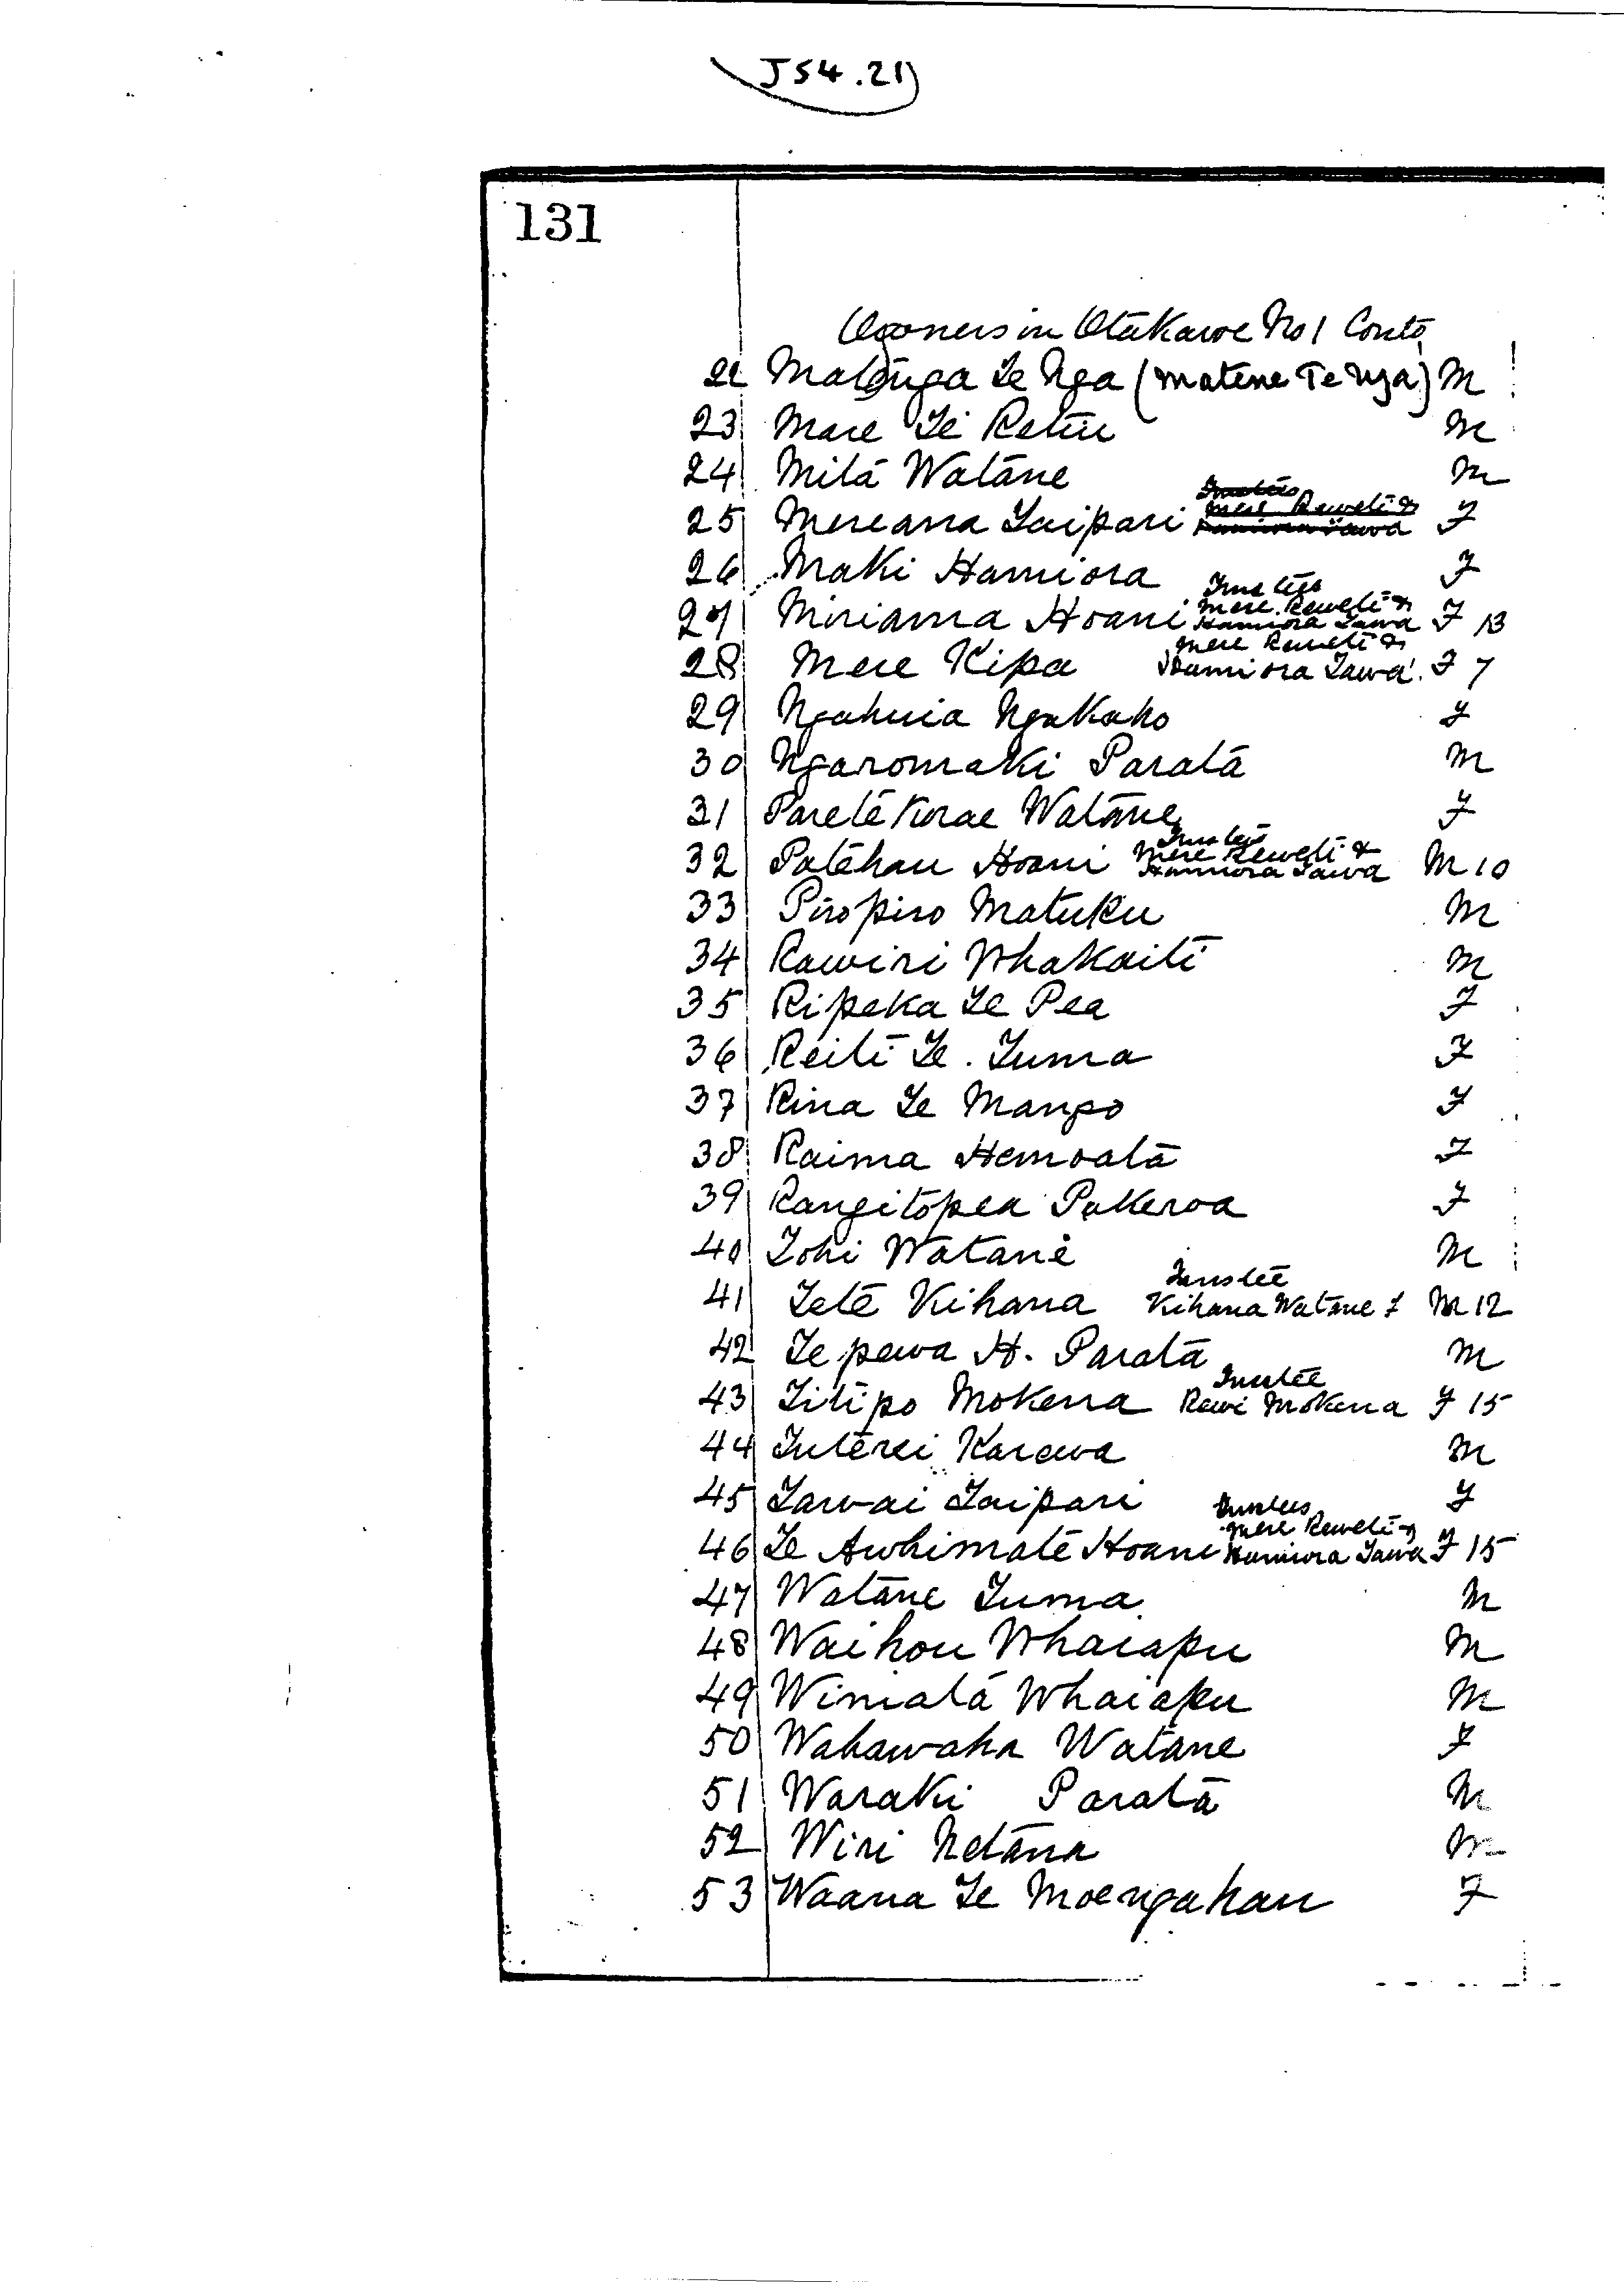 J54.21
131
Owners in Otakawe No 1 Contd
22 Matenga Te Nga (Matene Te Nga) M
23 Mare Te Retiu M
24 Mita Watane M
Trustees
Mere Reweti &
25 Mereana Taipari Hamiora Tawa F
26 Maki Hamiora F
Trustees
Mere Reweti &
27 Miriama Hoani Hamiora Tawa F 13
Mere Reweti &
28 Mere Kipa Hamiora Tawa. F 7
29 Ngahuia Ngakaho F
30 Ngaromaki Parata M
31 Paretekorae Watane F
Trustees
Mere Reweti &
32 Patehau Hoani Hamiora Tawa M 10
33 Piropiro Matuku M
34 Rawiri Whakaiti M
35 Ripeka Te Pea F
36 Reiti Te. Tuma F
37 Rina Te Mango F
38 Raima Hemoata F
39 Rangitopea Pakeroa F
40 Tohi Watane M
Trustee
41 Tete Kihana Kihana Watane f M 12
42 Te pewa H. Parata M
Trustee
43 Titipo Mokena Rewi Mokena F 15
44 Huterei Karewa M
45 Tawai Taipari F
Trustees
Mere Reweti &
46 Te Awhimate Hoani Hamiora Tawa F 15
47 Watane Tuma M
48 Waihou Whaiapu M
49 Wimata Whaiapu M
50 Wahawaha Watane F
51 Waraki Parata M
52 Wiri Netana M
53 Waana Te Moengahau F